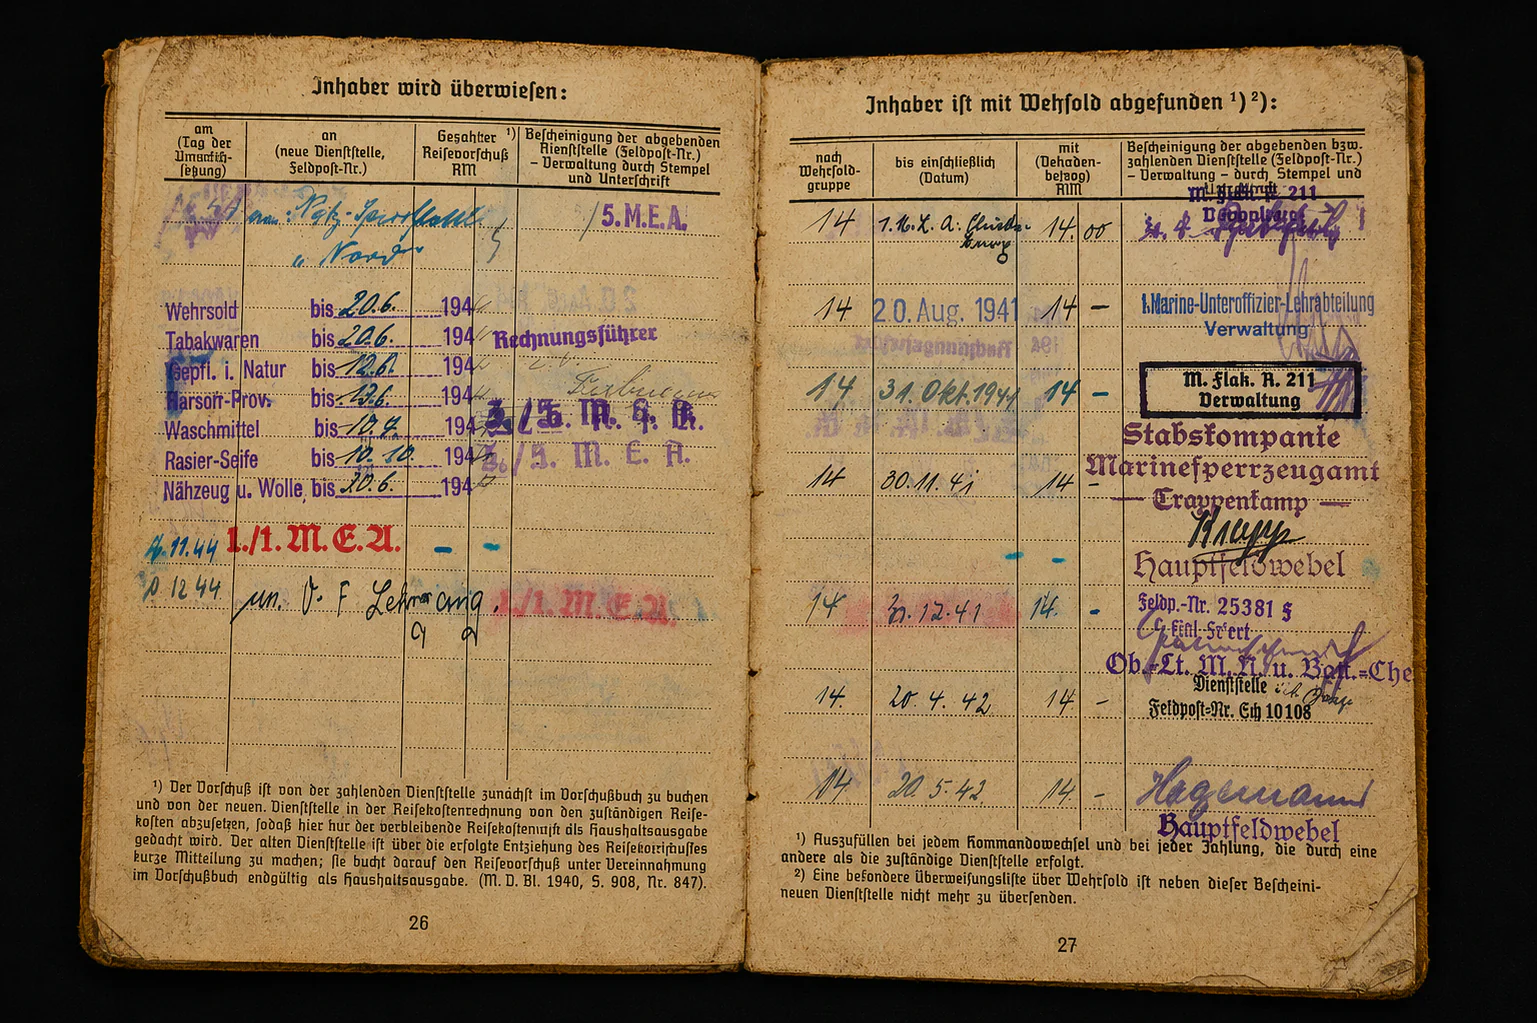 Inhaber wird überwiesen:
am
(Tag der
an
(neue Dienststelle,
Feldpost-Nr.)
Gezahlter ¹)
Reisevorschuß
RM
Bescheinigung der abgebenden
Dienststelle (Feldpost-Nr.)
– Verwaltung durch Stempel
und Unterschrift
/ 5. M.E.A.
"Nord"
Wehrsold bis 20.6. 194
Tabakwaren bis 20.6. 194
Rechnungsführer
Gepfl. i. Natur bis 12.6. 194
bis 13.6. 194
Waschmittel bis 10.7. 194
Rasier-Seife bis 10.10. 194
/ 5. M. E. A.
Nähzeug u. Wolle, bis 30.6. 194
11.44 1./1. M.E.A. – –
12 44 un. V. F
1./1. M.E.A.
¹) Der Vorschuß ist von der zahlenden Dienststelle zunächst im Vorschußbuch zu buchen
und von der neuen Dienststelle in der Reisekostenrechnung von den zuständigen Reise-
kosten abzusetzen, sodaß hier nur der verbleibende als Haushaltsausgabe
gedacht wird. Der alten Dienststelle ist über die erfolgte Entziehung des
kurze Mitteilung zu machen; sie bucht darauf den Reisevorschuß unter Vereinnahmung
im Vorschußbuch endgültig als Haushaltsausgabe. (M. D. Bl. 1940, S. 908, Nr. 847).
26
Inhaber ist mit Wehrsold abgefunden ¹) ²):
nach
Wehrsold-
gruppe
bis einschließlich
(Datum)
mit
RM
Bescheinigung der abgebenden bzw.
zahlenden Dienststelle (Feldpost-Nr.)
– Verwaltung – durch Stempel und
M. Flak. A. 211
14 14. 00
14 20. Aug. 1941 14 –
1. Marine-Unteroffizier-Lehrabteilung
Verwaltung
14 31. Okt. 1941 14 –
M. Flak. A. 211
Verwaltung
Stabskompanie
Marinesperrzeugamt
14 30.11.41 14 –
– Trappenkamp –
Krapp
Hauptfeldwebel
14 31.12.41 14. –
Feldp.-Nr. 25381
Ob.-Lt. M.A. u. Batt.-Che
Dienststelle
14. 20.4.42 14 –
Feldpost-Nr. Sch 10108
14 20.5.42 14 –
Hagemann
Hauptfeldwebel
¹) Auszufüllen bei jedem Kommandowechsel und bei jeder Zahlung, die durch eine
andere als die zuständige Dienststelle erfolgt.
²) Eine besondere Überweisungsliste über Wehrsold ist neben dieser Bescheini-
neuen Dienststelle nicht mehr zu übersenden.
27